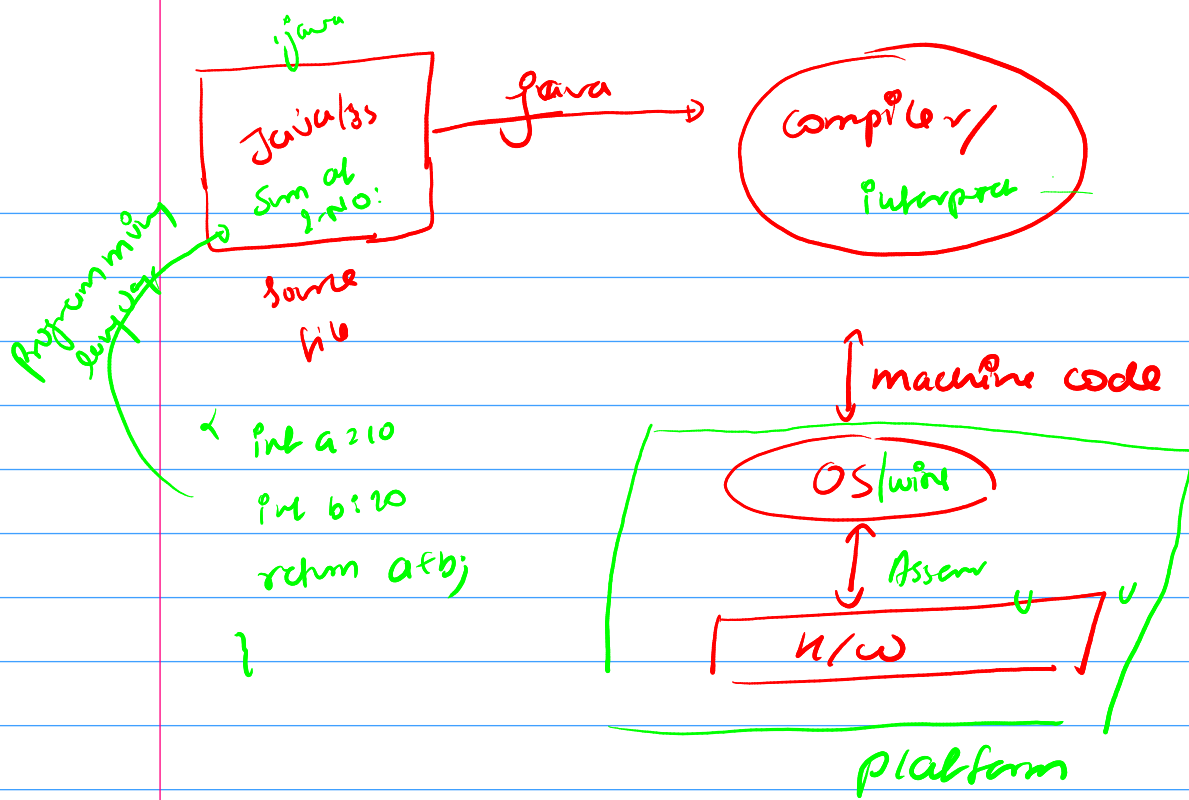 java
Java/Js
Sum of
2 NO:
java
compiler/
interpret
Programming
language
Source
file
machine code
int a=10
int b=20
return a+b;
}
OS/win
Assem
H/W
platform